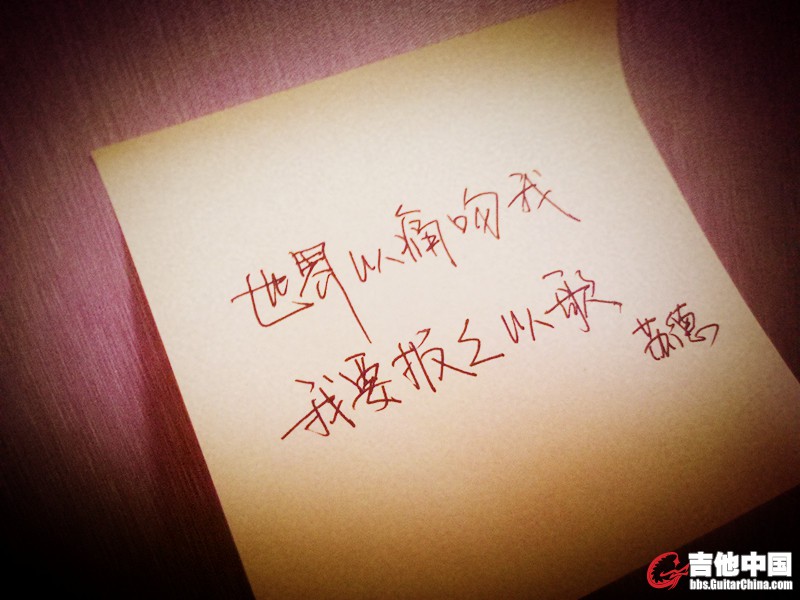 世界以痛吻我
我要报之以歌
苏德
吉他中国
bbs.GuitarChina.com